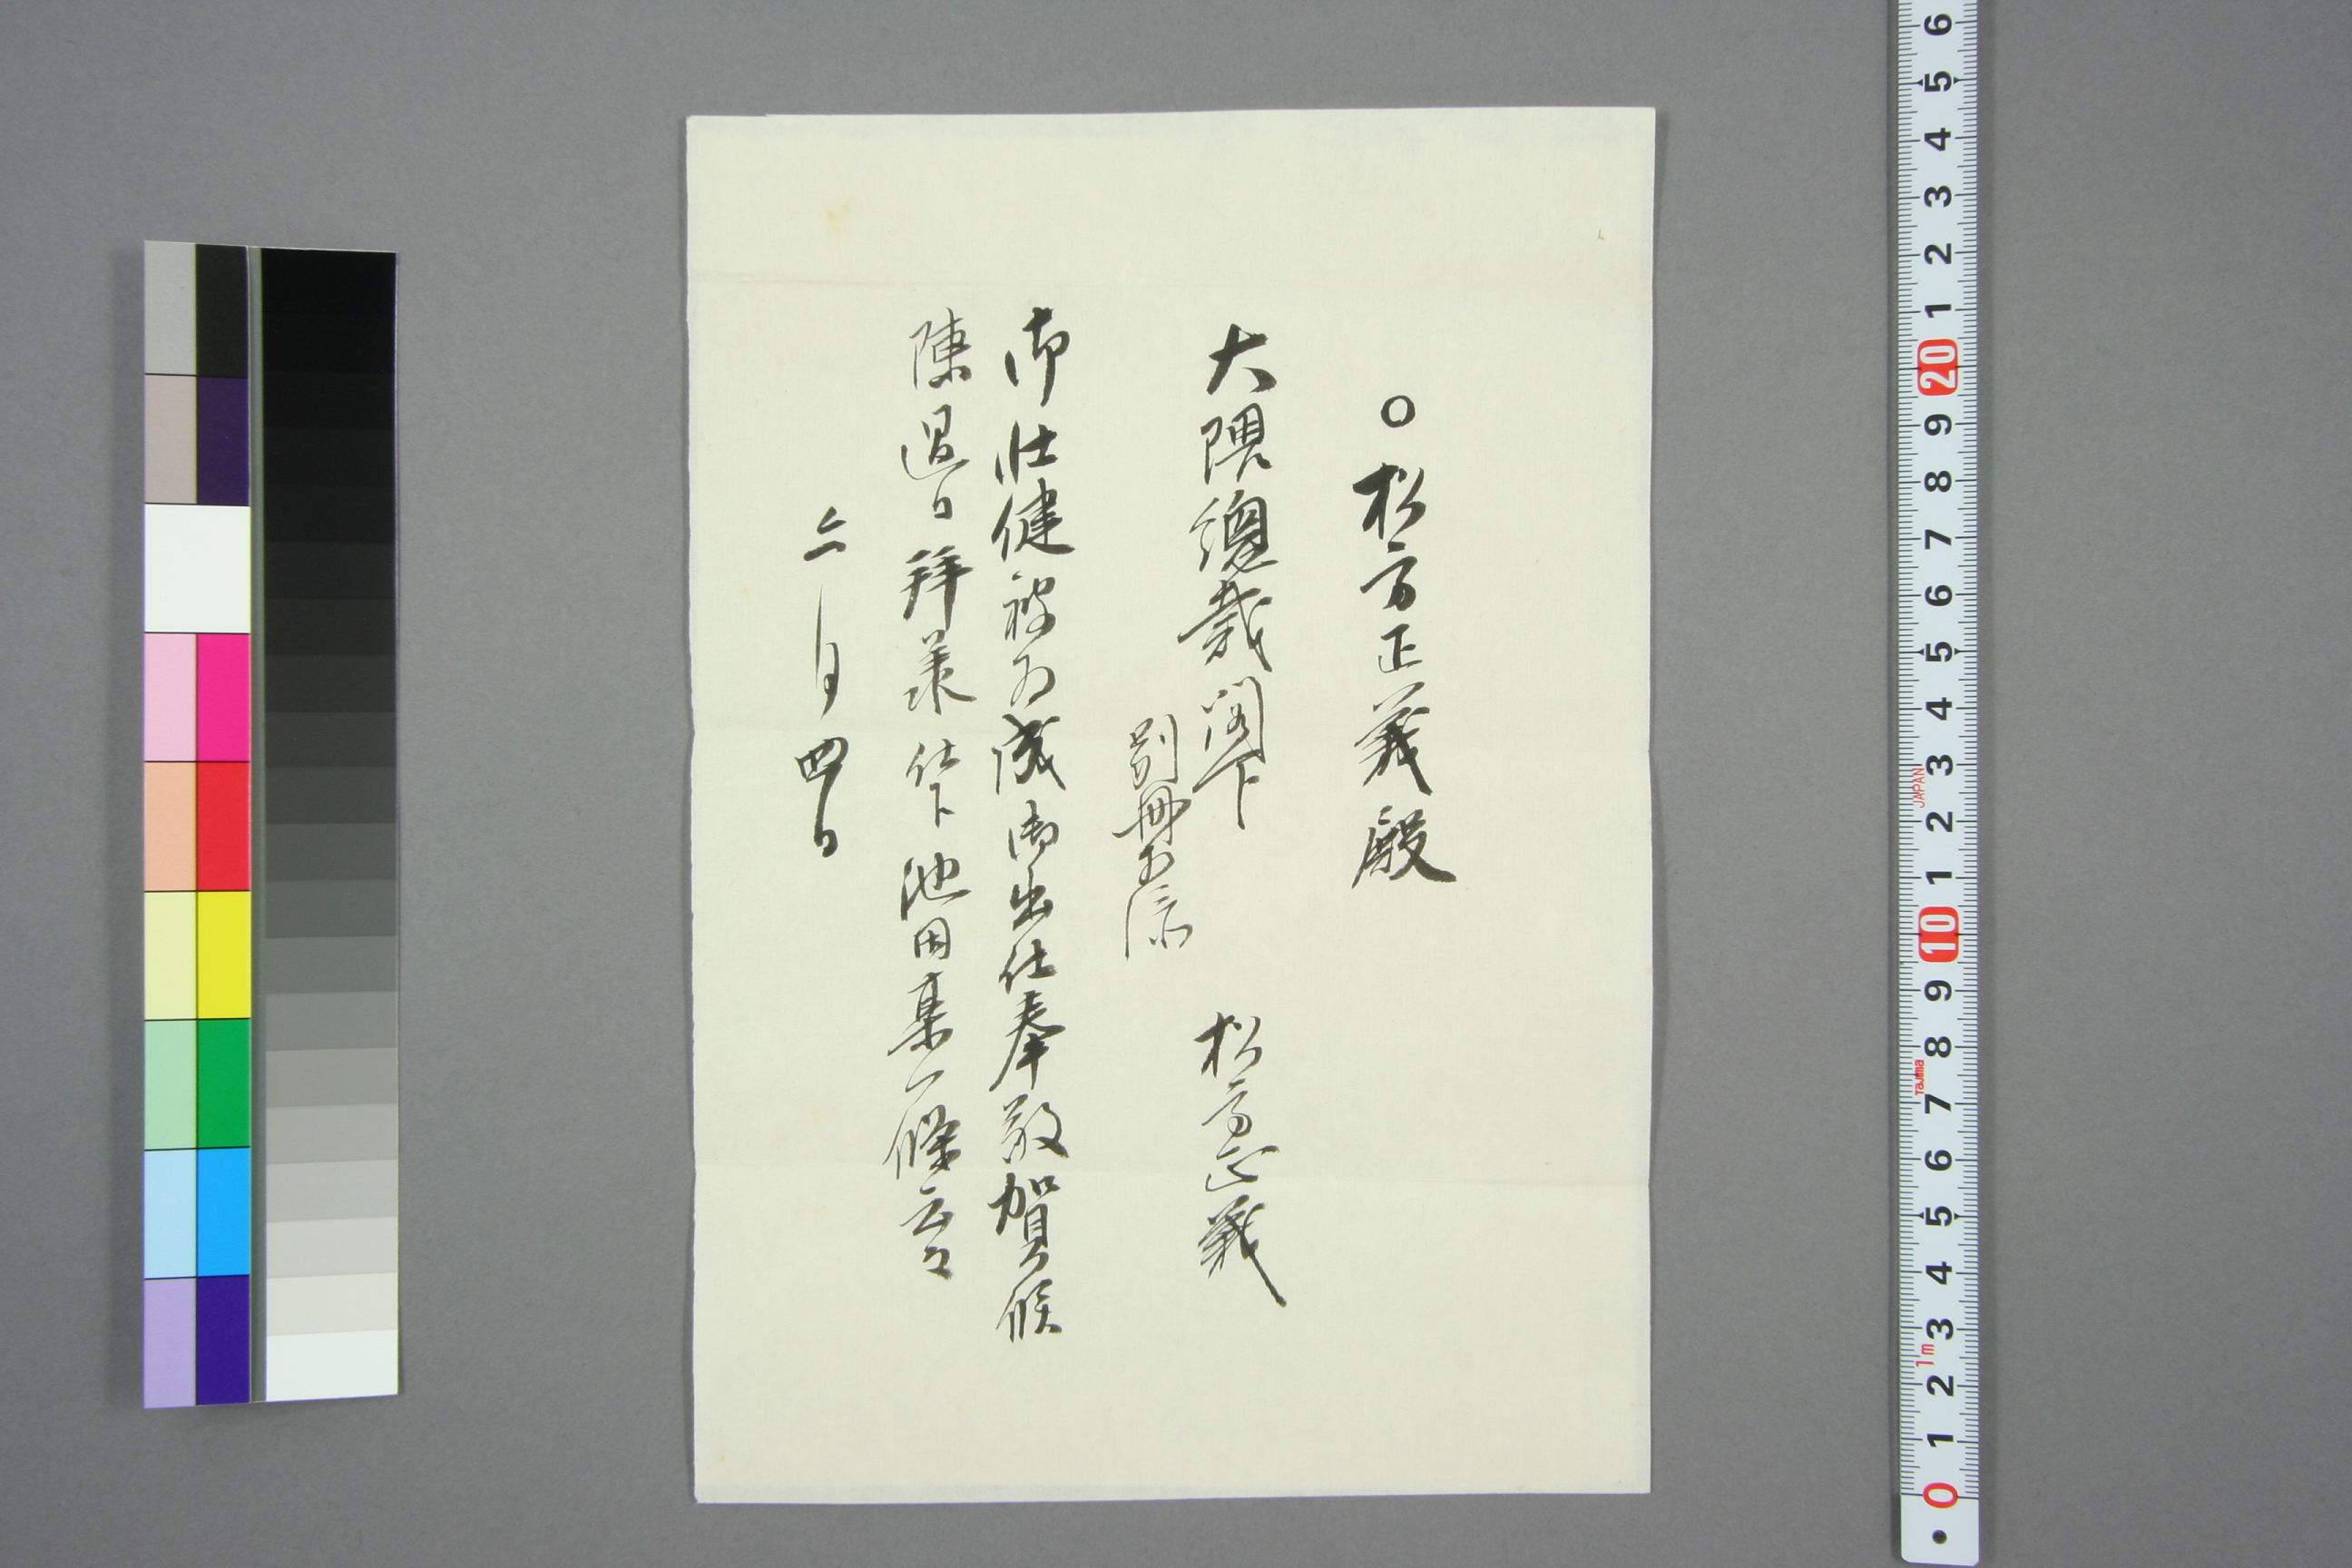 ○松方正義殿
大隈總裁閣下 松方正義
別冊お添
御壮健被為成御出仕奉敬賀候
陳過日拝美仕下池田某一條云々
六月四日
6
5
4
3
2
1
20
9
8
7
6
5
4
3
JAPAN
2
1
10
9
8
Tajima
7
6
5
4
3
1m
2
1
0